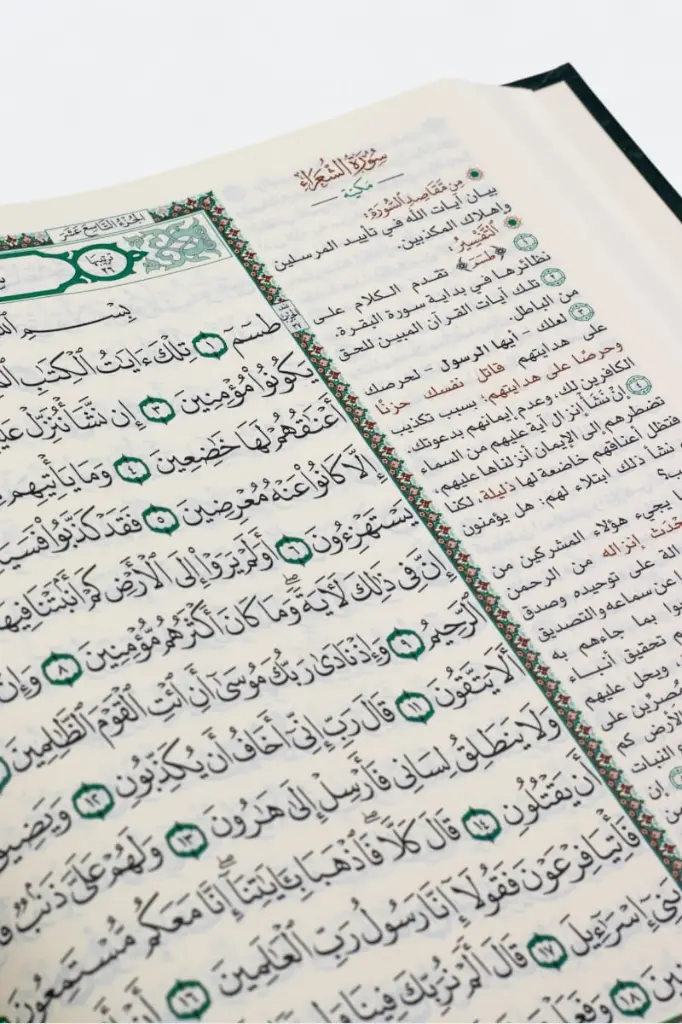 الجزء التاسع عشر
ترتيبها
٢٦
بِسْمِ
طسٓمٓ ١ تِلْكَ ءَايَٰتُ ٱلْكِتَٰبِ
يَكُونُوا۟ مُؤْمِنِينَ ٣ إِن نَّشَأْ نُنَزِّلْ
أَعْنَٰقُهُمْ لَهَا خَٰضِعِينَ ٤ وَمَا يَأْتِيهِم
إِلَّا كَانُوا۟ عَنْهُ مُعْرِضِينَ ٥ فَقَدْ كَذَّبُوا۟
يَسْتَهْزِءُونَ ٦ أَوَلَمْ يَرَوْا۟ إِلَى ٱلْأَرْضِ كَمْ أَنۢبَتْنَا فِيهَا
إِنَّ فِى ذَٰلِكَ لَءَايَةً ۖ وَمَا كَانَ أَكْثَرُهُم مُّؤْمِنِينَ ٨ وَإِنَّ
ٱلرَّحِيمُ ٩ وَإِذْ نَادَىٰ رَبُّكَ مُوسَىٰٓ أَنِ ٱئْتِ ٱلْقَوْمَ ٱلظَّٰلِمِينَ
أَلَا يَتَّقُونَ ١١ قَالَ رَبِّ إِنِّىٓ أَخَافُ أَن يُكَذِّبُونِ ١٢ وَيَضِيقُ
وَلَا يَنطَلِقُ لِسَانِى فَأَرْسِلْ إِلَىٰ هَٰرُونَ ١٣ وَلَهُمْ عَلَىَّ ذَنۢبٌ
أَن يَقْتُلُونِ ١٤ قَالَ كَلَّا ۖ فَٱذْهَبَا بِـَٔايَٰتِنَآ ۖ إِنَّا مَعَكُم مُّسْتَمِعُونَ
فَأْتِيَا فِرْعَوْنَ فَقُولَآ إِنَّا رَسُولُ رَبِّ ٱلْعَٰلَمِينَ ١٦ أَنْ
بَنِىٓ إِسْرَٰٓءِيلَ ١٧ قَالَ أَلَمْ نُرَبِّكَ فِينَا
١٨ وَفَعَلْتَ
سُورَةُ الشُّعَرَاءِ
مَكِّيَّة
مِن مَّقَاصِدِ السُّورَةِ:
بيان آيات الله في تأييد المرسلين
وإهلاك المكذبين.
التَّفْسِيرُ:
١ ﴿طسٓمٓ﴾ تقدم الكلام على
نظائرها في بداية سورة البقرة.
٢ تلك آيات القرآن المبين للحق
من الباطل.
٣ لعلك - أيها الرسول - لحرصك
على هدايتهم قاتل نفسك حزنًا
وحرصًا على هدايتهم؛ بسبب تكذيب
الكافرين لك، وعدم إيمانهم بدعوتك.
٤ إن نشأ إنزال آية عليهم من السماء
تضطرهم إلى الإيمان أنزلناها عليهم،
فتظل أعناقهم خاضعة لها ذليلة، لكنا
نشأ ذلك ابتلاء لهم: هل يؤمنون
يجيء هؤلاء المشركين من
إنزاله من الرحمن
على توحيده وصدق
عن سماعه والتصديق
بما جاءهم به
تحقيق أنباء
ويحل عليهم
على
الأرض كم
النبات
إن